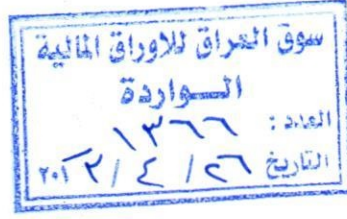 سوق العراق للاوراق المالية
الــواردة
العدد : ١٣٦٦
التاريخ ٢٦ / ٤ / ٢٠١٢